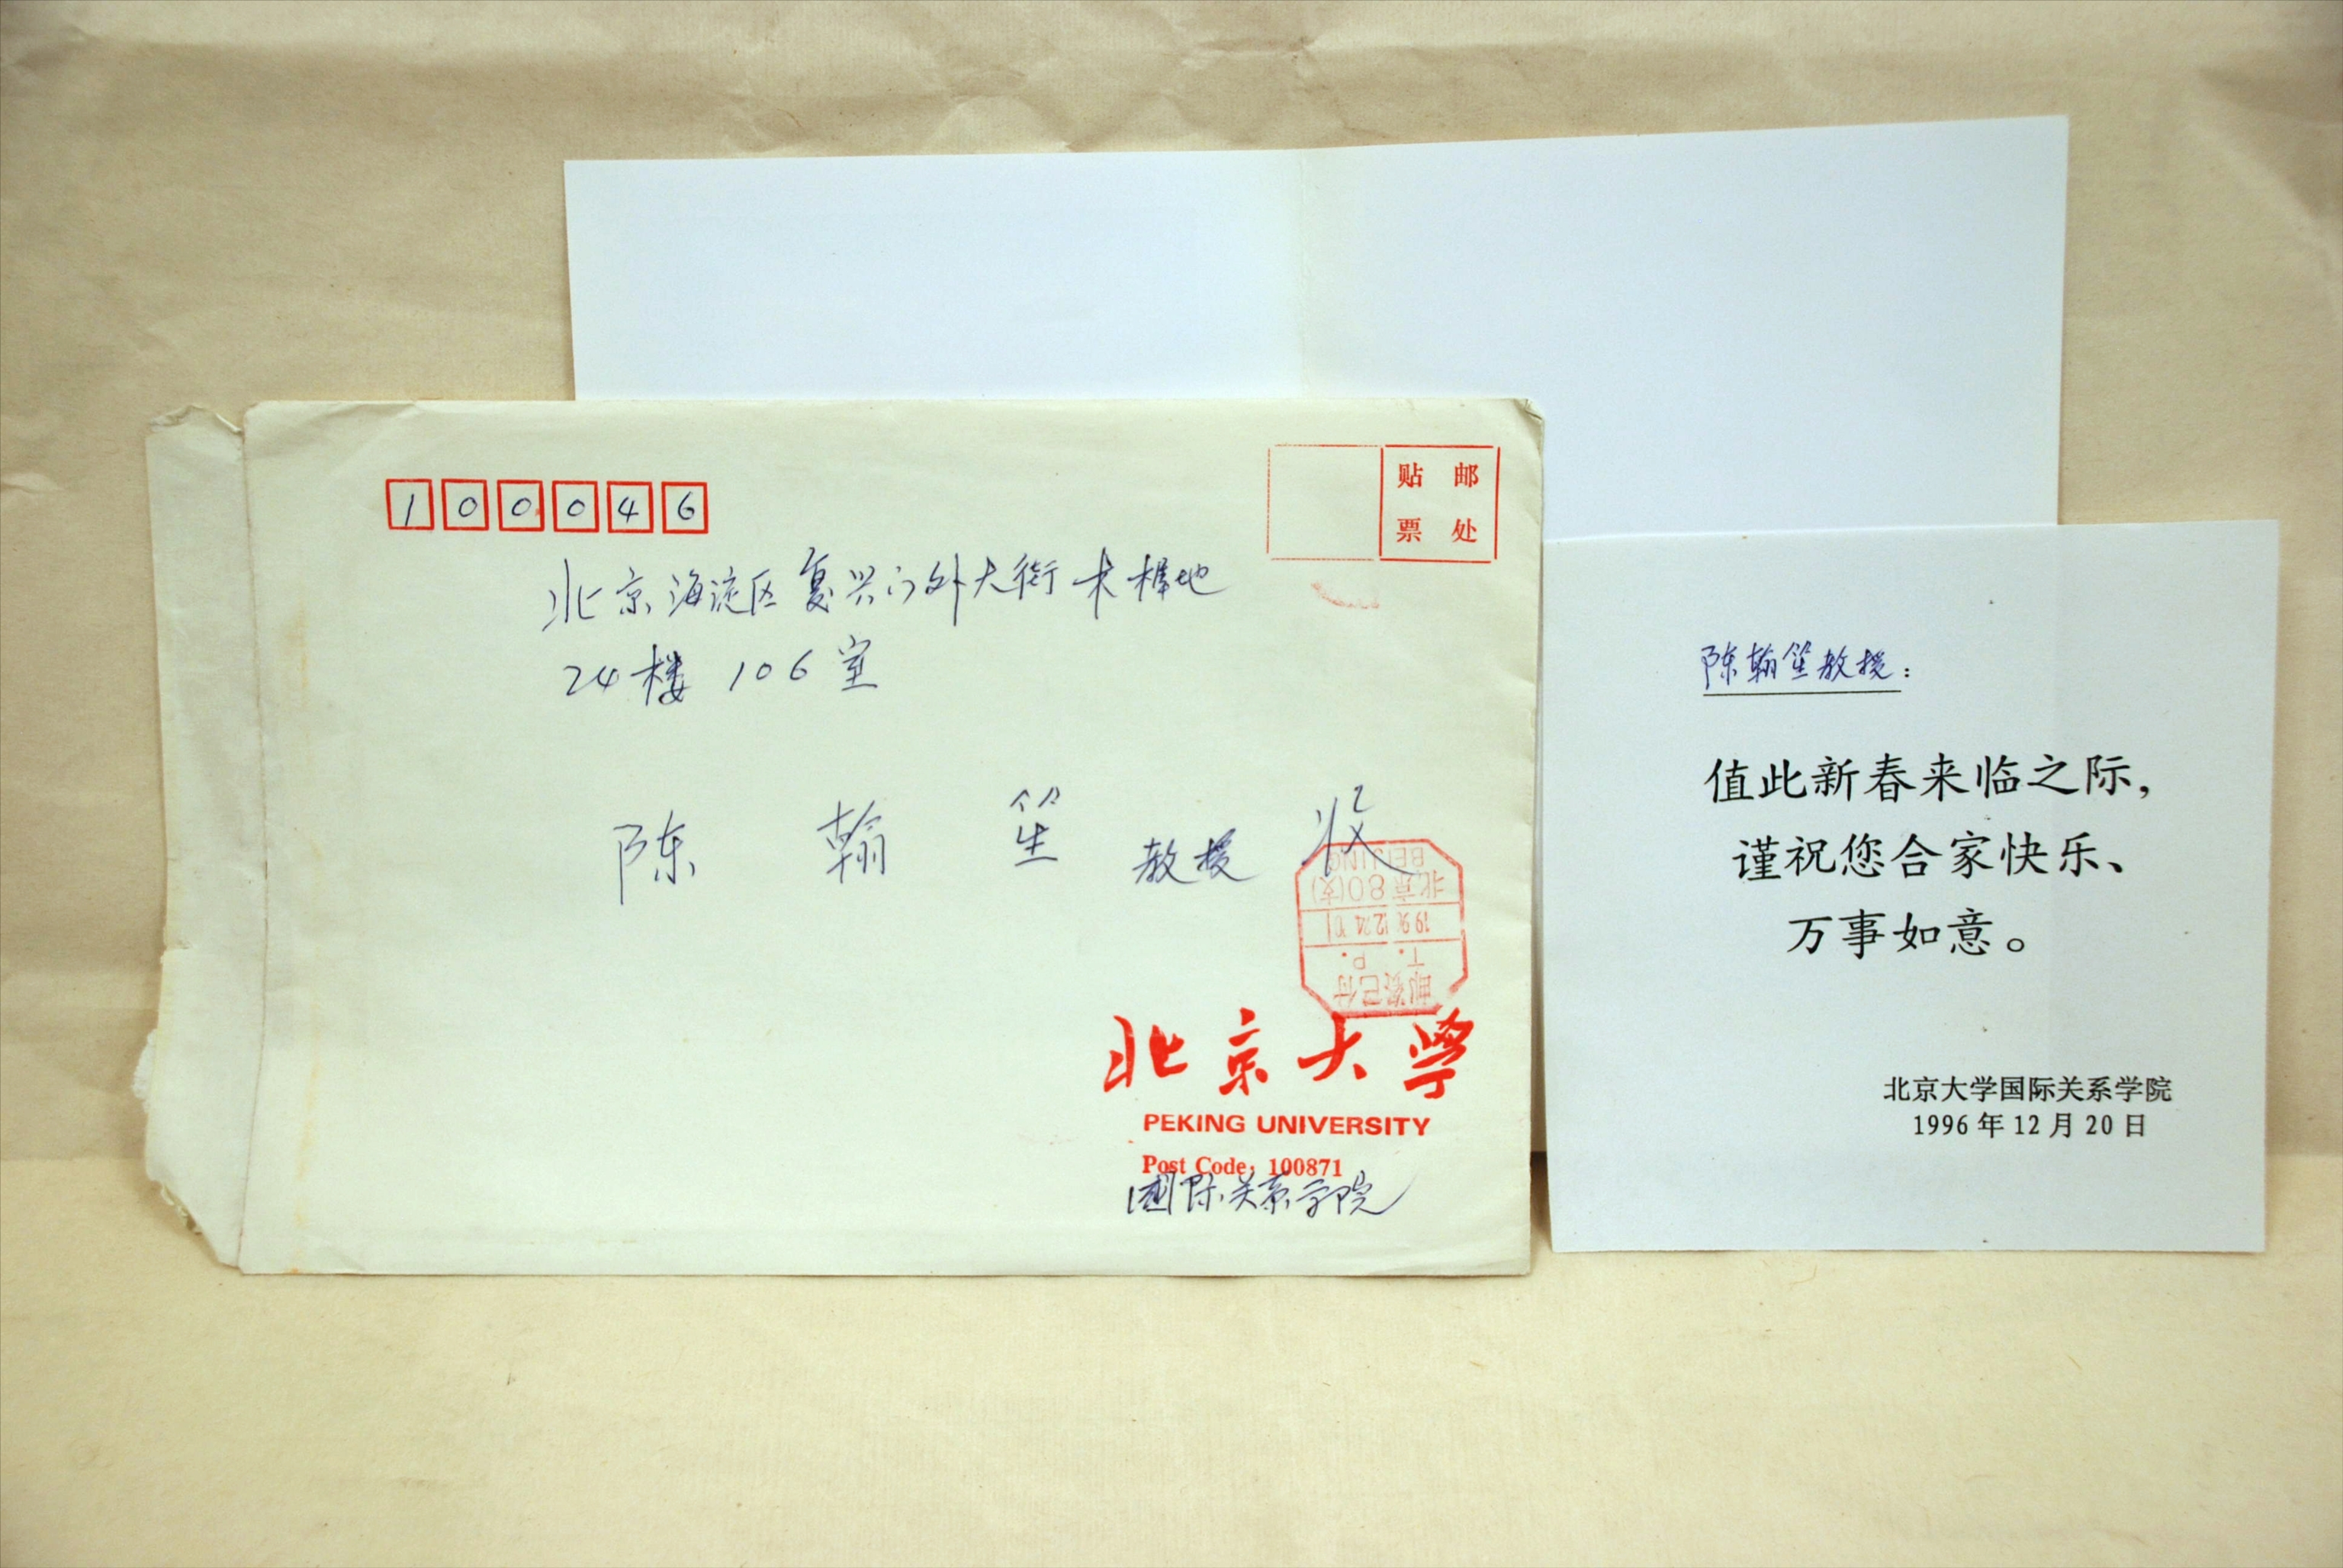 100046
贴 邮
票 处
北京海淀区复兴门外大街木樨地
24楼 106室
陈 翰 笙 教授 收
BEIJING
北京80(支)
邮资已付
T. P.
北京大学
PEKING UNIVERSITY
Post Code: 100871
国际关系学院
陈翰笙教授：
值此新春来临之际，
谨祝您合家快乐、
万事如意。
北京大学国际关系学院
1996年12月20日